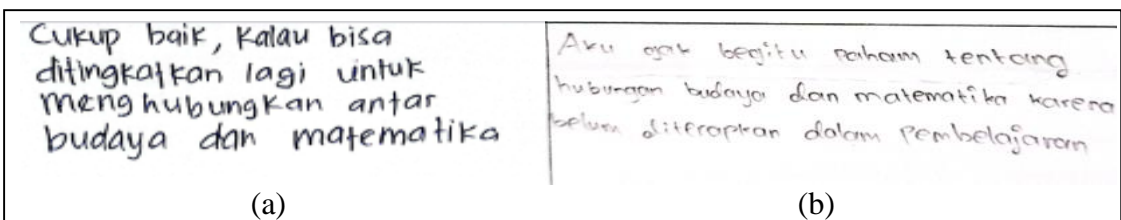 Cukup baik, kalau bisa
ditingkatkan lagi untuk
menghubungkan antar
budaya dan matematika
(a)
Aku gak begitu paham tentang
hubungan budaya dan matematika karena
belum diterapkan dalam pembelajaran
(b)